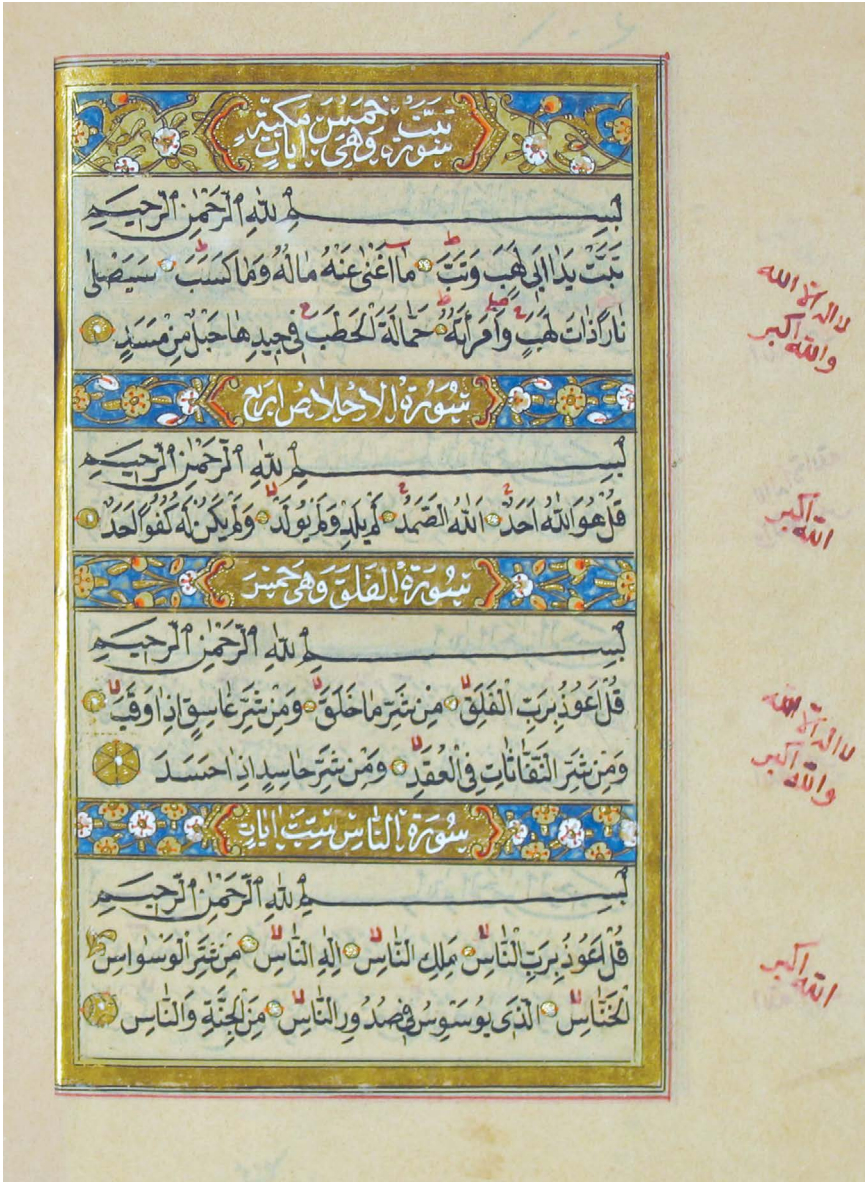 سورة تبت خمس مكية
وهى ايات
بِسْمِ اللهِ الرَّحْمٰنِ الرَّحِيمِ
تَبَّتْ يَدَا اَبِى لَهَبٍ وَتَبَّ مَا اَغْنٰى عَنْهُ مَالُهُ وَمَا كَسَبَ سَيَصْلٰى
نَارًا ذَاتَ لَهَبٍ وَامْرَاَتُهُ حَمَّالَةَ الْحَطَبِ فِى جِيدِهَا حَبْلٌ مِنْ مَسَدٍ
سُورَةُ الاخلاص اربع
بِسْمِ اللهِ الرَّحْمٰنِ الرَّحِيمِ
قُلْ هُوَ اللهُ اَحَدٌ اَللهُ الصَّمَدُ لَمْ يَلِدْ وَلَمْ يُولَدْ وَلَمْ يَكُنْ لَهُ كُفُوًا اَحَدٌ
سُورَةُ الفلق وهى خمس
بِسْمِ اللهِ الرَّحْمٰنِ الرَّحِيمِ
قُلْ اَعُوذُ بِرَبِّ الْفَلَقِ مِنْ شَرِّ مَا خَلَقَ وَمِنْ شَرِّ غَاسِقٍ اِذَا وَقَبَ
وَمِنْ شَرِّ النَّفَّاثَاتِ فِى الْعُقَدِ وَمِنْ شَرِّ حَاسِدٍ اِذَا حَسَدَ
سُورَةُ النَّاسِ ست ايات
بِسْمِ اللهِ الرَّحْمٰنِ الرَّحِيمِ
قُلْ اَعُوذُ بِرَبِّ النَّاسِ مَلِكِ النَّاسِ اِلٰهِ النَّاسِ مِنْ شَرِّ الْوَسْوَاسِ
الْخَنَّاسِ الَّذِى يُوَسْوِسُ فِى صُدُورِ النَّاسِ مِنَ الْجِنَّةِ وَالنَّاسِ
لا اله الا الله
والله اكبر
الله اكبر
لا اله الا الله
والله اكبر
الله اكبر